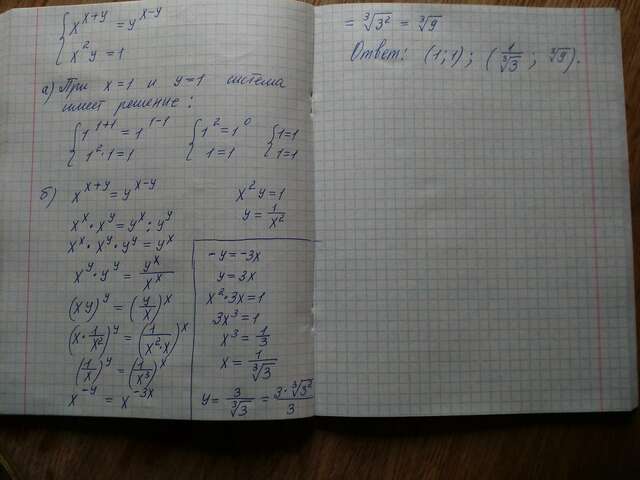 { x^(x+y) = y^(x-y)
x²y = 1
а) При x=1 и y=1 система
имеет решение:
{ 1^(1+1) = 1^(1-1) { 1² = 1⁰ { 1=1
1²·1=1 1=1 1=1
б) x^(x+y) = y^(x-y)
x^x · x^y = y^x : y^y
x^x · x^y · y^y = y^x
x^y · y^y = y^x / x^x
(xy)^y = (y/x)^x
(x · 1/x²)^y = (1/(x²·x))^x
(1/x)^y = (1/x³)^x
x^(-y) = x^(-3x)
x²y=1
y = 1/x²
-y = -3x
y = 3x
x²·3x = 1
3x³ = 1
x³ = 1/3
x = 1/∛3
y = 3/∛3 = 3·∛3² / 3
= ∛3² = ∛9
Ответ: (1;1); (1/∛3; ∛9).